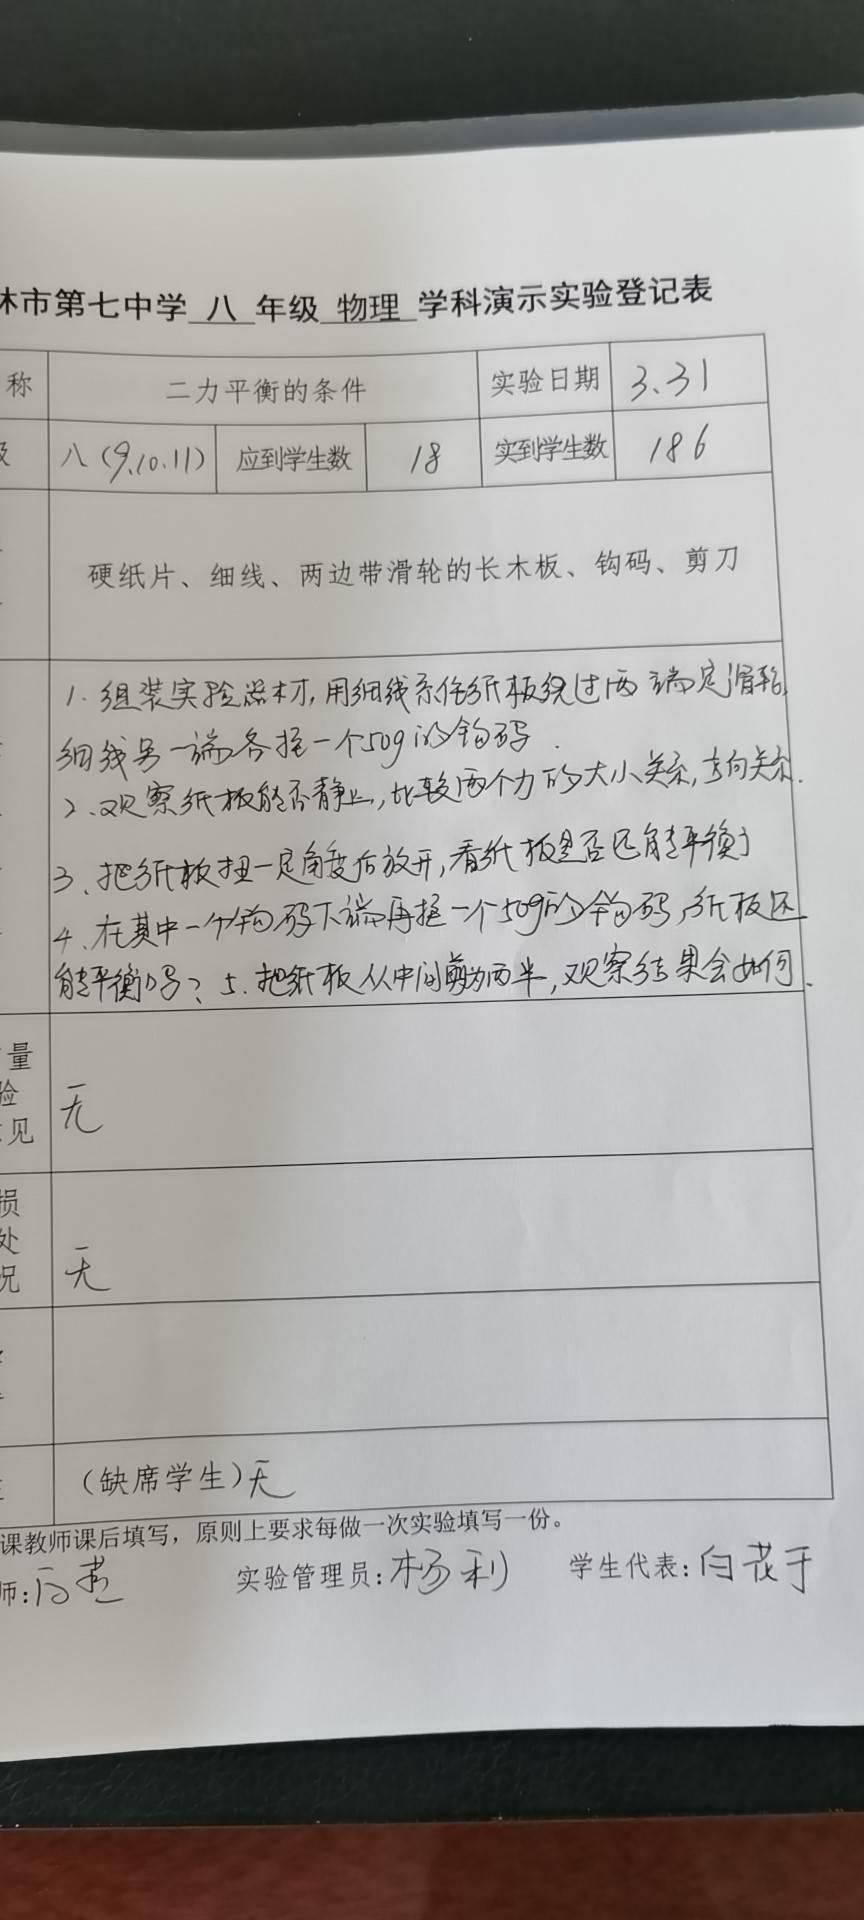 林市第七中学 八 年级 物理 学科演示实验登记表
称 二力平衡的条件 实验日期 3.31
级 八(9.10.11) 应到学生数 18 实到学生数 186
硬纸片、细线、两边带滑轮的长木板、钩码、剪刀
1.组装实验器材,用细线系住纸板绕过两端定滑轮,
细线另一端各挂一个50g的钩码.
2.观察纸板能否静止,比较两个力的大小关系,方向关系.
3、把纸板扭一定角度后放开,看纸板是否还能平衡?
4.在其中一个钩码下端再挂一个50g的钩码,纸板还
能平衡吗? 5.把纸板从中间剪为两半,观察结果会如何.
量
验
见 无
损
处
况 无
(缺席学生)无
课教师课后填写，原则上要求每做一次实验填写一份。
师: 实验管理员:杨利 学生代表:白花于